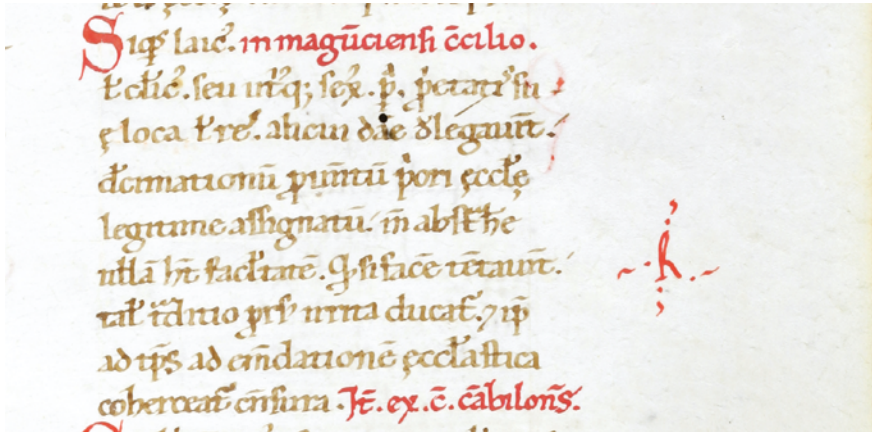 Siq̄s laic᷒. in magūciensi c̄cilio.
ł cłic᷒. seu utͥq; sex᷒. p̄. p̍etatis sū
ę loca ł res. alicui dāe d̄legauīt.
d̄cimationū ꝓuētū p̍ori ęccłę
legitime assignatū. īn abst̄he
ullā hn̄t facłtatē. Qđ si facē tētauīt.
tał t̄ditio ꝓrs᷒ irrita ducat᷒. ⁊ ip̄
ad ip̄s ad em̄dationē ęccłastica
coherceat᷒ cēsura. Jt̄. ex. c̄. cābilon̄s.
k